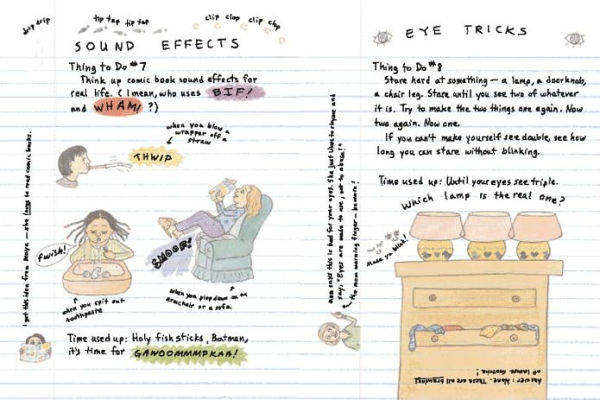 drip drip
tip tap tip tap
clip clop clip clop
SOUND EFFECTS
Thing to Do #7
Think up comic book sound effects for
real life. (I mean, who uses BIF!
and WHAM! ?)
when you blow a
wrapper off a
straw
THWIP
fwish!
when you spit out
toothpaste
SNOOF!
when you plop down on an
armchair or a sofa.
I got this idea from Margie - she loves to read comic books.
Time used up: Holy fish sticks, Batman,
it's time for GAWOOMMMPKAA!
EYE TRICKS
Thing to Do #8
Stare hard at something - a lamp, a doorknob,
a chair leg. Stare until you see two of whatever
it is. Try to make the two things one again. Now
two again. Now one.
If you can't make yourself see double, see how
long you can stare without blinking.
Time used up: Until your eyes see triple.
Which lamp is the real one?
Made you blink!
says this is bad for your eyes. She just likes to rhyme and
say, "Eyes are made to use, not to abuse!"
the mom warning finger - beware!
Answer: None. These are all drawings
of lamps